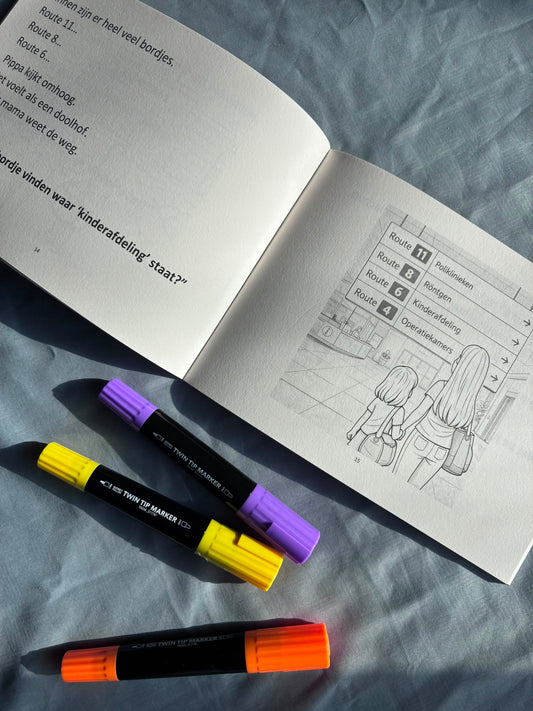 zijn er heel veel bordjes.
Route 11...
Route 8...
Route 6...
Pippa kijkt omhoog.
voelt als een doolhof.
mama weet de weg.
vinden waar ‘kinderafdeling’ staat?”
14
Route 11 Poliklinieken
Route 8 Röntgen
Route 6 Kinderafdeling →
Route 4 Operatiekamers →
→
15
TWIN TIP MARKER
TWIN TIP MARKER
TWIN TIP MARKER